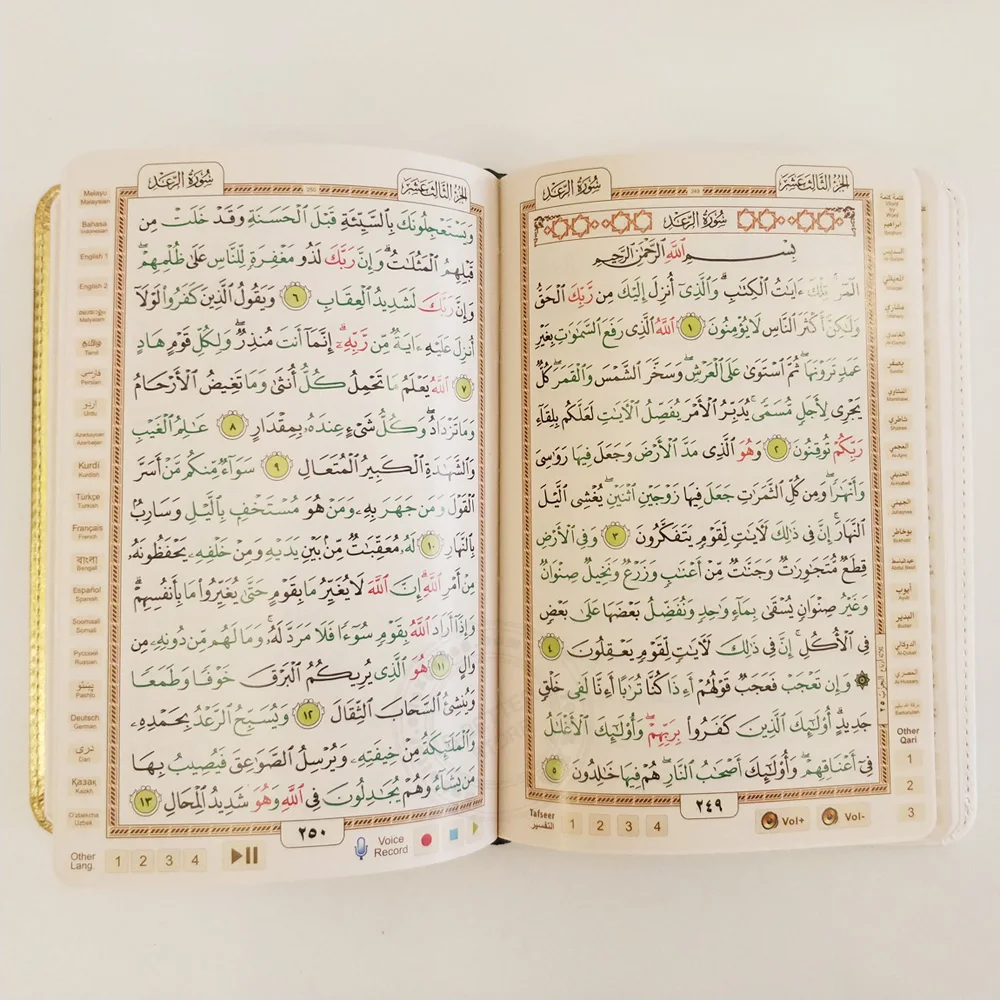 الجُزْءُ الثَّالِثَ عَشَرَ
249
سُورَةُ الرَّعْدِ
سُورَةُ الرَّعْدِ
بِسْمِ ٱللَّهِ ٱلرَّحْمَٰنِ ٱلرَّحِيمِ
الٓمٓر ۚ تِلْكَ ءَايَٰتُ ٱلْكِتَٰبِ ۗ وَٱلَّذِىٓ أُنزِلَ إِلَيْكَ مِن رَّبِّكَ ٱلْحَقُّ
وَلَٰكِنَّ أَكْثَرَ ٱلنَّاسِ لَا يُؤْمِنُونَ ١ ٱللَّهُ ٱلَّذِى رَفَعَ ٱلسَّمَٰوَٰتِ بِغَيْرِ
عَمَدٍ تَرَوْنَهَا ۖ ثُمَّ ٱسْتَوَىٰ عَلَى ٱلْعَرْشِ ۖ وَسَخَّرَ ٱلشَّمْسَ وَٱلْقَمَرَ ۖ كُلٌّ
يَجْرِى لِأَجَلٍ مُّسَمًّى ۚ يُدَبِّرُ ٱلْأَمْرَ يُفَصِّلُ ٱلْءَايَٰتِ لَعَلَّكُم بِلِقَآءِ
رَبِّكُمْ تُوقِنُونَ ٢ وَهُوَ ٱلَّذِى مَدَّ ٱلْأَرْضَ وَجَعَلَ فِيهَا رَوَٰسِىَ
وَأَنْهَٰرًا ۖ وَمِن كُلِّ ٱلثَّمَرَٰتِ جَعَلَ فِيهَا زَوْجَيْنِ ٱثْنَيْنِ ۖ يُغْشِى ٱلَّيْلَ
ٱلنَّهَارَ ۚ إِنَّ فِى ذَٰلِكَ لَءَايَٰتٍ لِّقَوْمٍ يَتَفَكَّرُونَ ٣ وَفِى ٱلْأَرْضِ
قِطَعٌ مُّتَجَٰوِرَٰتٌ وَجَنَّٰتٌ مِّنْ أَعْنَٰبٍ وَزَرْعٌ وَنَخِيلٌ صِنْوَانٌ
وَغَيْرُ صِنْوَانٍ يُسْقَىٰ بِمَآءٍ وَٰحِدٍ وَنُفَضِّلُ بَعْضَهَا عَلَىٰ بَعْضٍ
فِى ٱلْأُكُلِ ۚ إِنَّ فِى ذَٰلِكَ لَءَايَٰتٍ لِّقَوْمٍ يَعْقِلُونَ ٤
۞ وَإِن تَعْجَبْ فَعَجَبٌ قَوْلُهُمْ أَءِذَا كُنَّا تُرَٰبًا أَءِنَّا لَفِى خَلْقٍ
جَدِيدٍ ۗ أُو۟لَٰٓئِكَ ٱلَّذِينَ كَفَرُوا۟ بِرَبِّهِمْ ۖ وَأُو۟لَٰٓئِكَ ٱلْأَغْلَٰلُ
فِىٓ أَعْنَاقِهِمْ ۖ وَأُو۟لَٰٓئِكَ أَصْحَٰبُ ٱلنَّارِ ۖ هُمْ فِيهَا خَٰلِدُونَ ٥
٢٤٩
كلمة كلمة
Word by Word
ابراهيم
السديس
العفاسي
مشاري
الغامدي
المنشاوي
شاطري
العجمي
الحذيفي
الجهني
بوخاطر
عبد الباسط
أيوب
Ayub
البدير
الدوكالي
الحصري
Al-Hussary
Other
Qari
1
2
3
Tafseer
التفسير
1 2 3 4
Vol+
Vol-
الجُزْءُ الثَّالِثَ عَشَرَ
250
سُورَةُ الرَّعْدِ
وَيَسْتَعْجِلُونَكَ بِٱلسَّيِّئَةِ قَبْلَ ٱلْحَسَنَةِ وَقَدْ خَلَتْ مِن
قَبْلِهِمُ ٱلْمَثُلَٰتُ ۗ وَإِنَّ رَبَّكَ لَذُو مَغْفِرَةٍ لِّلنَّاسِ عَلَىٰ ظُلْمِهِمْ ۖ
وَإِنَّ رَبَّكَ لَشَدِيدُ ٱلْعِقَابِ ٦ وَيَقُولُ ٱلَّذِينَ كَفَرُوا۟ لَوْلَآ
أُنزِلَ عَلَيْهِ ءَايَةٌ مِّن رَّبِّهِۦٓ ۗ إِنَّمَآ أَنتَ مُنذِرٌ ۖ وَلِكُلِّ قَوْمٍ هَادٍ
٧ ٱللَّهُ يَعْلَمُ مَا تَحْمِلُ كُلُّ أُنثَىٰ وَمَا تَغِيضُ ٱلْأَرْحَامُ
وَمَا تَزْدَادُ ۖ وَكُلُّ شَىْءٍ عِندَهُۥ بِمِقْدَارٍ ٨ عَٰلِمُ ٱلْغَيْبِ
وَٱلشَّهَٰدَةِ ٱلْكَبِيرُ ٱلْمُتَعَالِ ٩ سَوَآءٌ مِّنكُم مَّنْ أَسَرَّ
ٱلْقَوْلَ وَمَن جَهَرَ بِهِۦ وَمَنْ هُوَ مُسْتَخْفٍۭ بِٱلَّيْلِ وَسَارِبٌۢ
بِٱلنَّهَارِ ١٠ لَهُۥ مُعَقِّبَٰتٌ مِّنۢ بَيْنِ يَدَيْهِ وَمِنْ خَلْفِهِۦ يَحْفَظُونَهُۥ
مِنْ أَمْرِ ٱللَّهِ ۗ إِنَّ ٱللَّهَ لَا يُغَيِّرُ مَا بِقَوْمٍ حَتَّىٰ يُغَيِّرُوا۟ مَا بِأَنفُسِهِمْ ۗ
وَإِذَآ أَرَادَ ٱللَّهُ بِقَوْمٍ سُوٓءًا فَلَا مَرَدَّ لَهُۥ ۚ وَمَا لَهُم مِّن دُونِهِۦ مِن
وَالٍ ١١ هُوَ ٱلَّذِى يُرِيكُمُ ٱلْبَرْقَ خَوْفًا وَطَمَعًا
وَيُنشِئُ ٱلسَّحَابَ ٱلثِّقَالَ ١٢ وَيُسَبِّحُ ٱلرَّعْدُ بِحَمْدِهِۦ
وَٱلْمَلَٰٓئِكَةُ مِنْ خِيفَتِهِۦ وَيُرْسِلُ ٱلصَّوَٰعِقَ فَيُصِيبُ بِهَا
مَن يَشَآءُ وَهُمْ يُجَٰدِلُونَ فِى ٱللَّهِ وَهُوَ شَدِيدُ ٱلْمِحَالِ ١٣
٢٥٠
Malayu
Malaysian
Bahasa
Indonesian
English 1
English 2
Malyalam
Tamil
فارسی
Persian
اردو
Urdu
Azərbaycan
Azerbaijan
Kurdi
Kurdish
Türkçe
Turkish
Français
French
বাংলা
Bengali
Español
Spanish
Soomaali
Somali
Русский
Russian
پښتو
Pashto
Deutsch
German
دری
Dari
Қазақ
Kazakh
O'zbekcha
Uzbek
Other
Lang.
1 2 3 4
Voice
Record